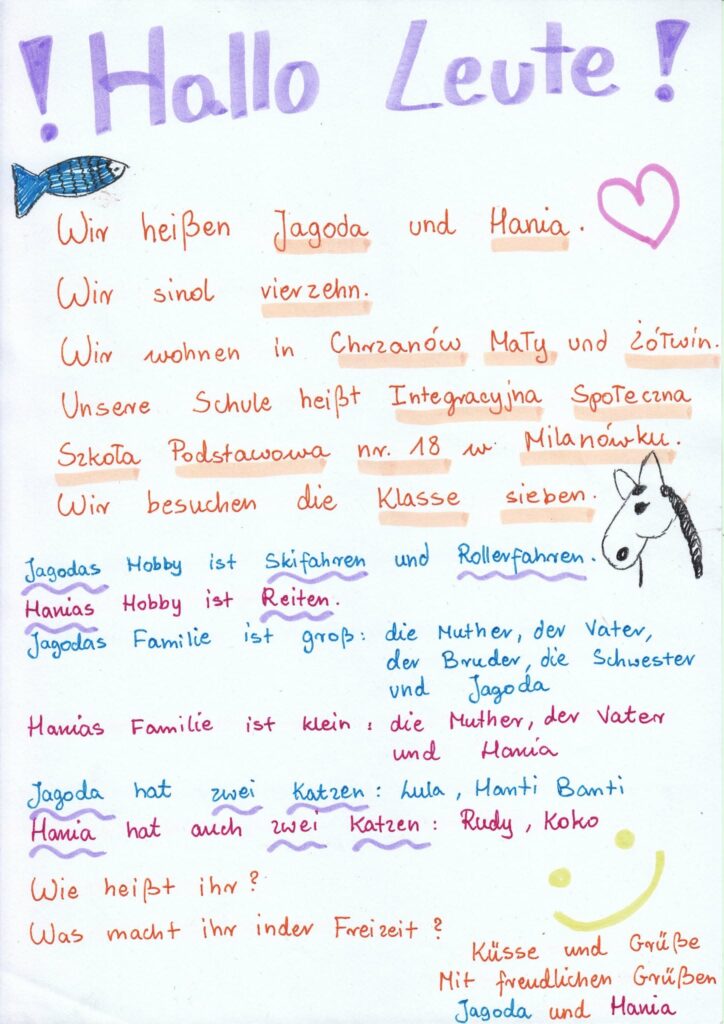 ! Hallo Leute !
Wir heißen Jagoda und Hania.
Wir sind vierzehn.
Wir wohnen in Chrzanów Mały und Żółwin.
Unsere Schule heißt Integracyjna Społeczna
Szkoła Podstawowa nr. 18 w Milanówku.
Wir besuchen die Klasse sieben.
Jagodas Hobby ist Skifahren und Rollerfahren.
Hanias Hobby ist Reiten.
Jagodas Familie ist groß: die Muther, der Vater,
der Bruder, die Schwester
und Jagoda
Hanias Familie ist klein: die Muther, der Vater
und Hania
Jagoda hat zwei Katzen: Lula, Hanti Banti
Hania hat auch zwei Katzen: Rudy, Koko
Wie heißt ihr?
Was macht ihr inder Freizeit?
Küsse und Grüße
Mit freudlichen Grüßen
Jagoda und Hania